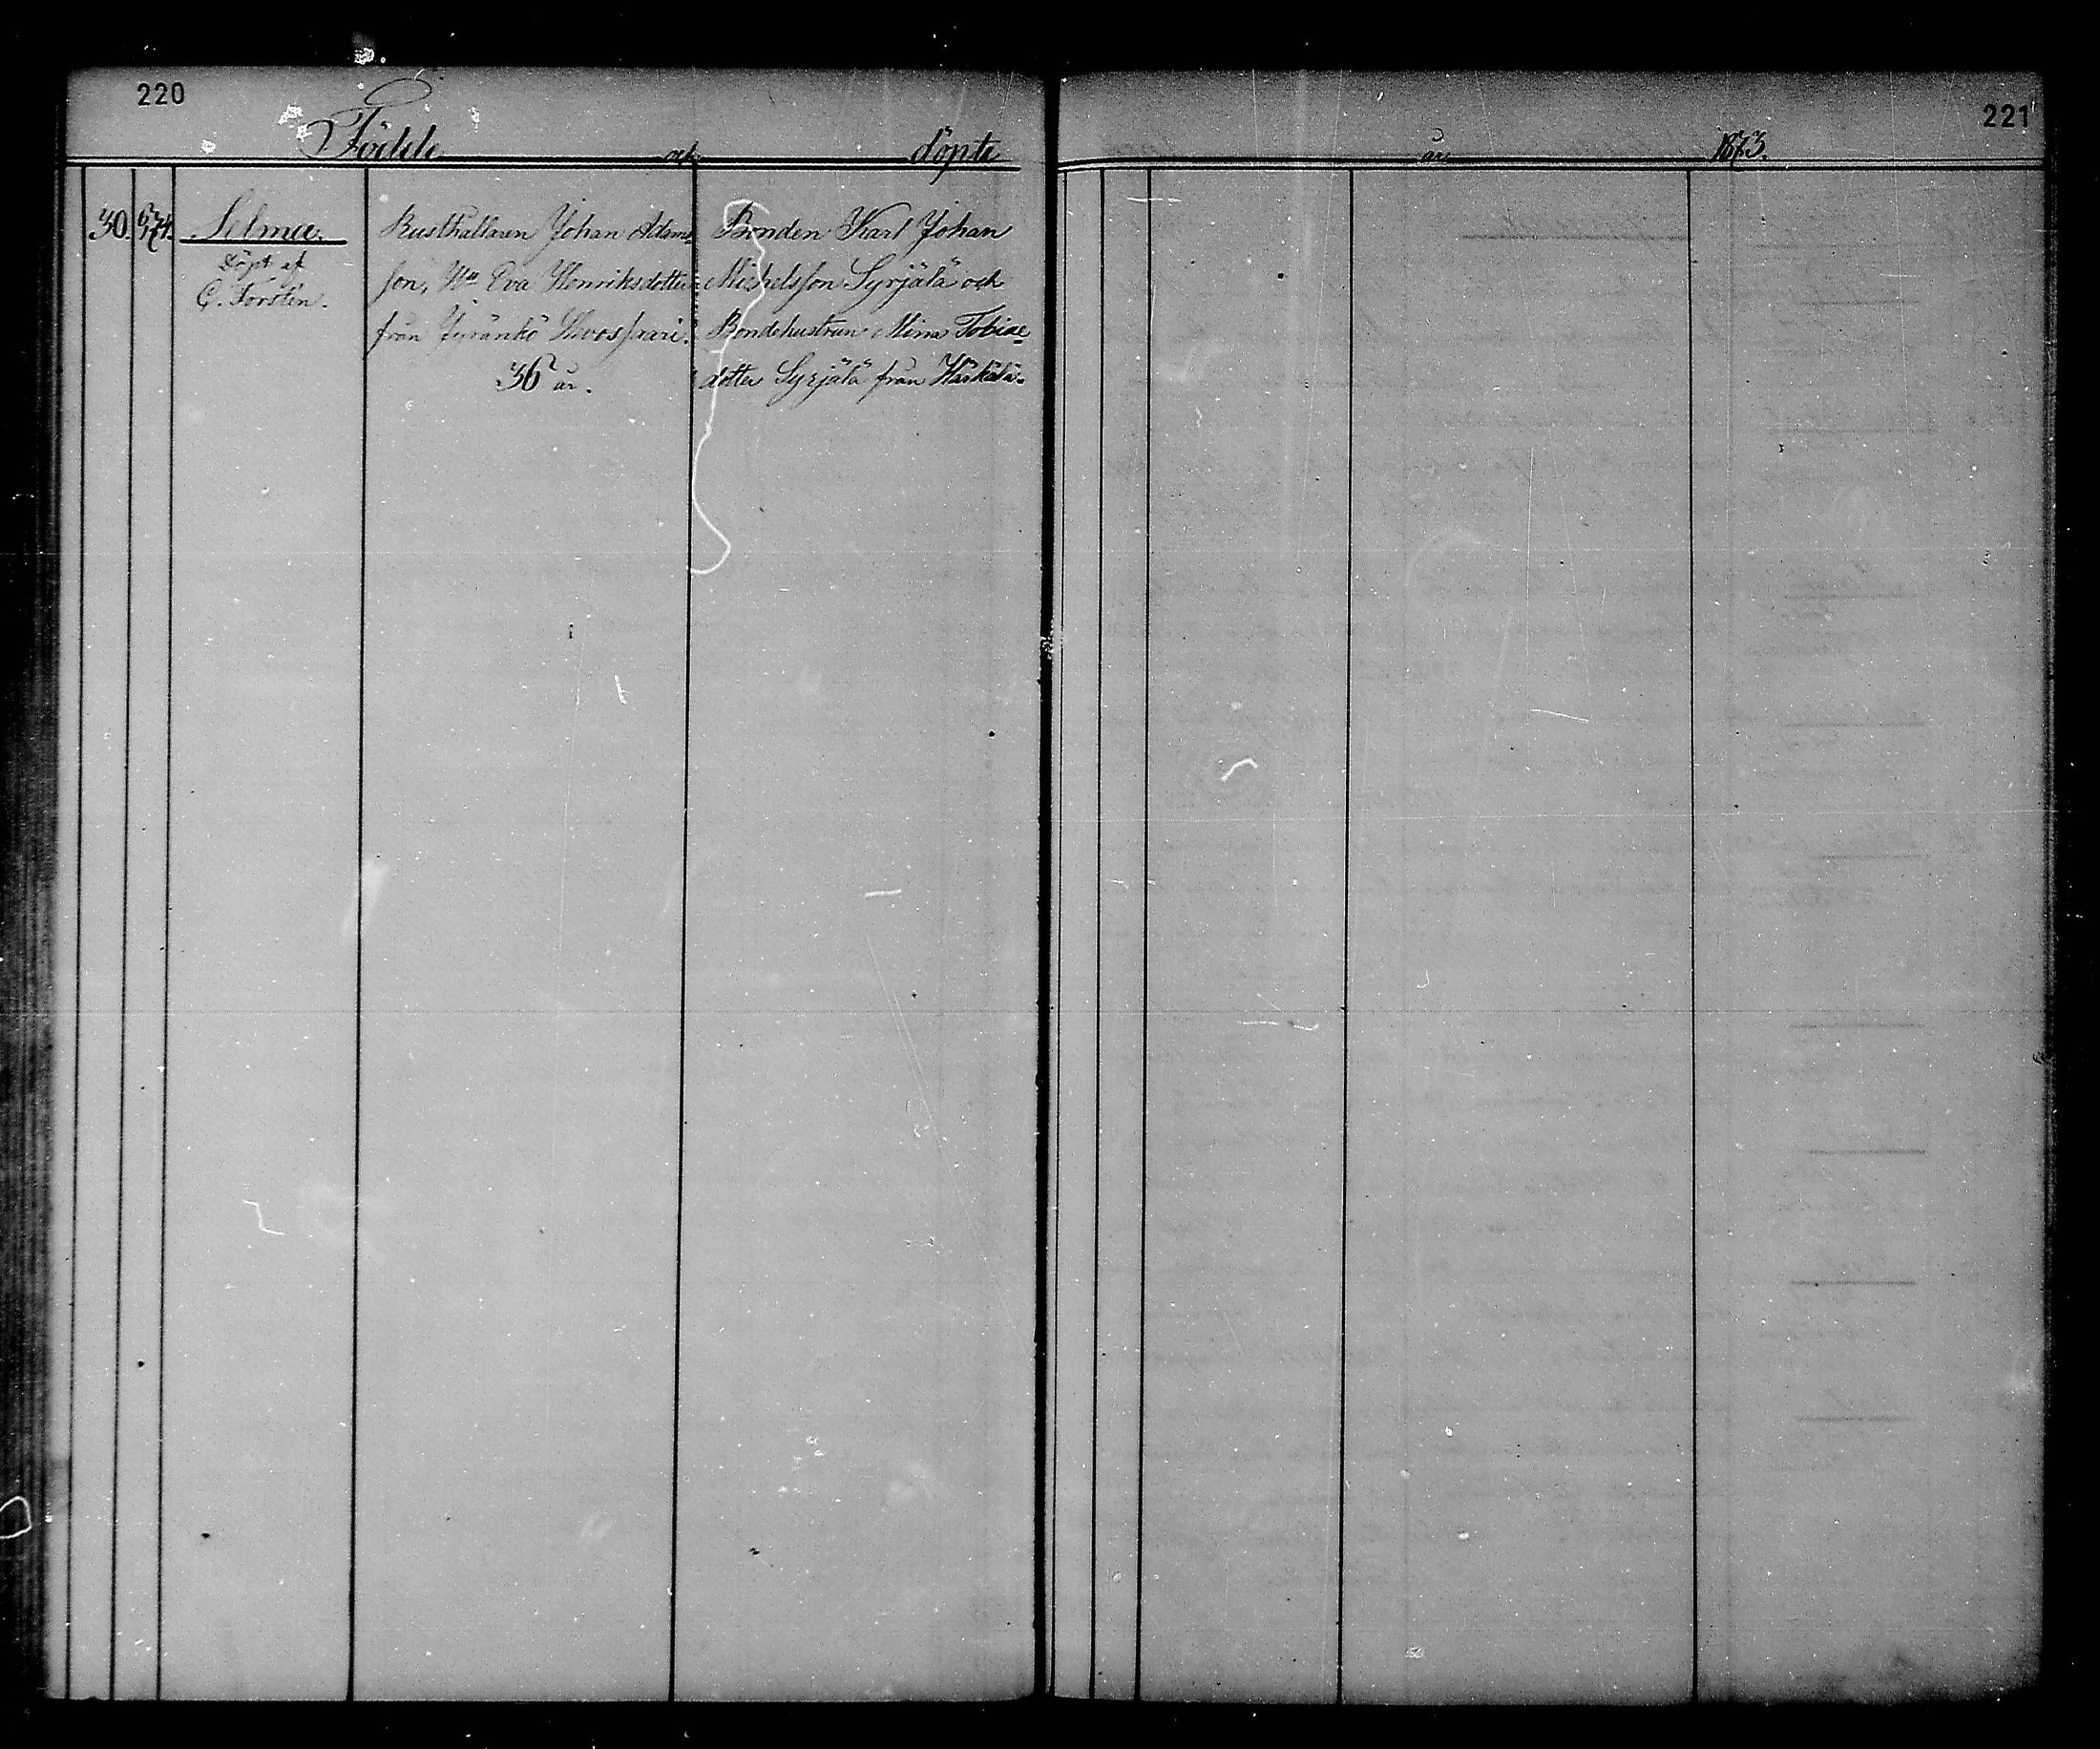 220
221
Födde och döpte år 1873.
30. 6/1 74. Selma.
Döpt af
C. Forstén.
Rusthållaren Johan Adams
son, H:u Eva Henriksdotter
från Jyränkö Hevossaari.
36 år.
Bonden Karl Johan
Michelsson Syrjälä och
Bondehustrun Mina Tobiae
dotter Syrjälä från Härkälä.